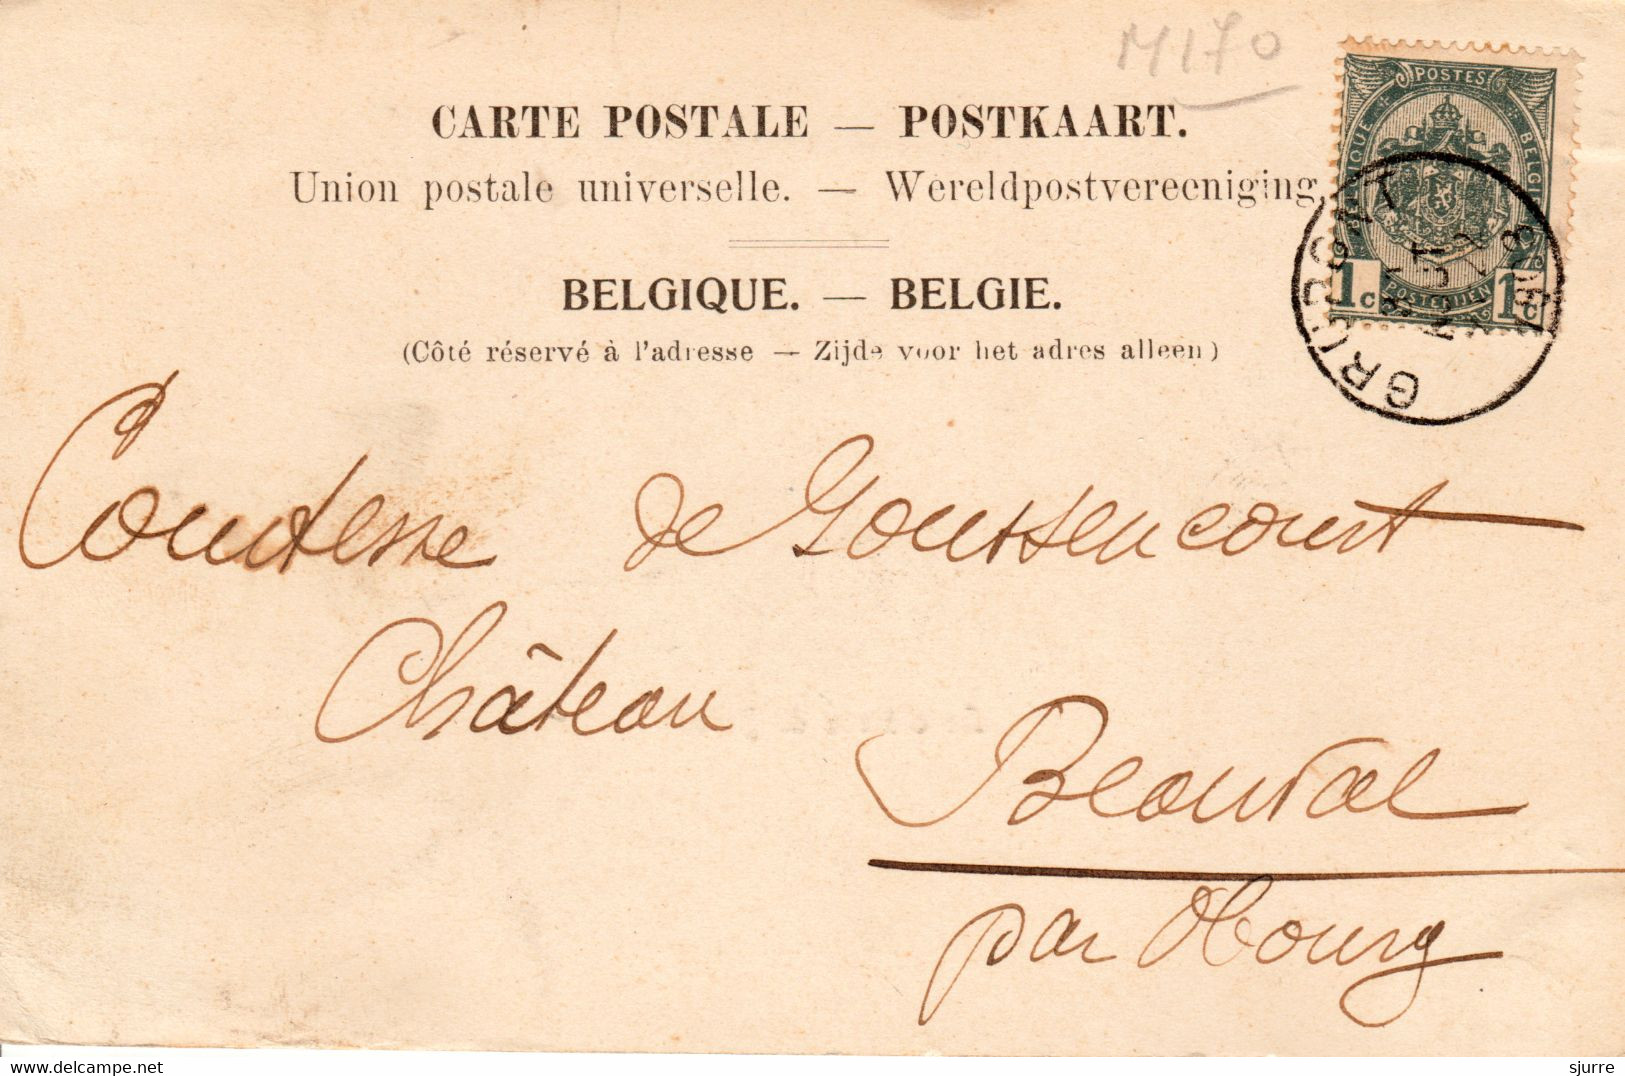 M170
CARTE POSTALE — POSTKAART.
Union postale universelle. — Wereldpostvereeniging.
BELGIQUE. — BELGIE.
(Côté réservé à l'adresse — Zijde voor het adres alleen)
POSTES
BELGIQUE BELGIE
1c POSTERIJEN 1c
Comtesse de Goussencourt
Château
Beauval
par Obourg
delcampe.net
sjurre